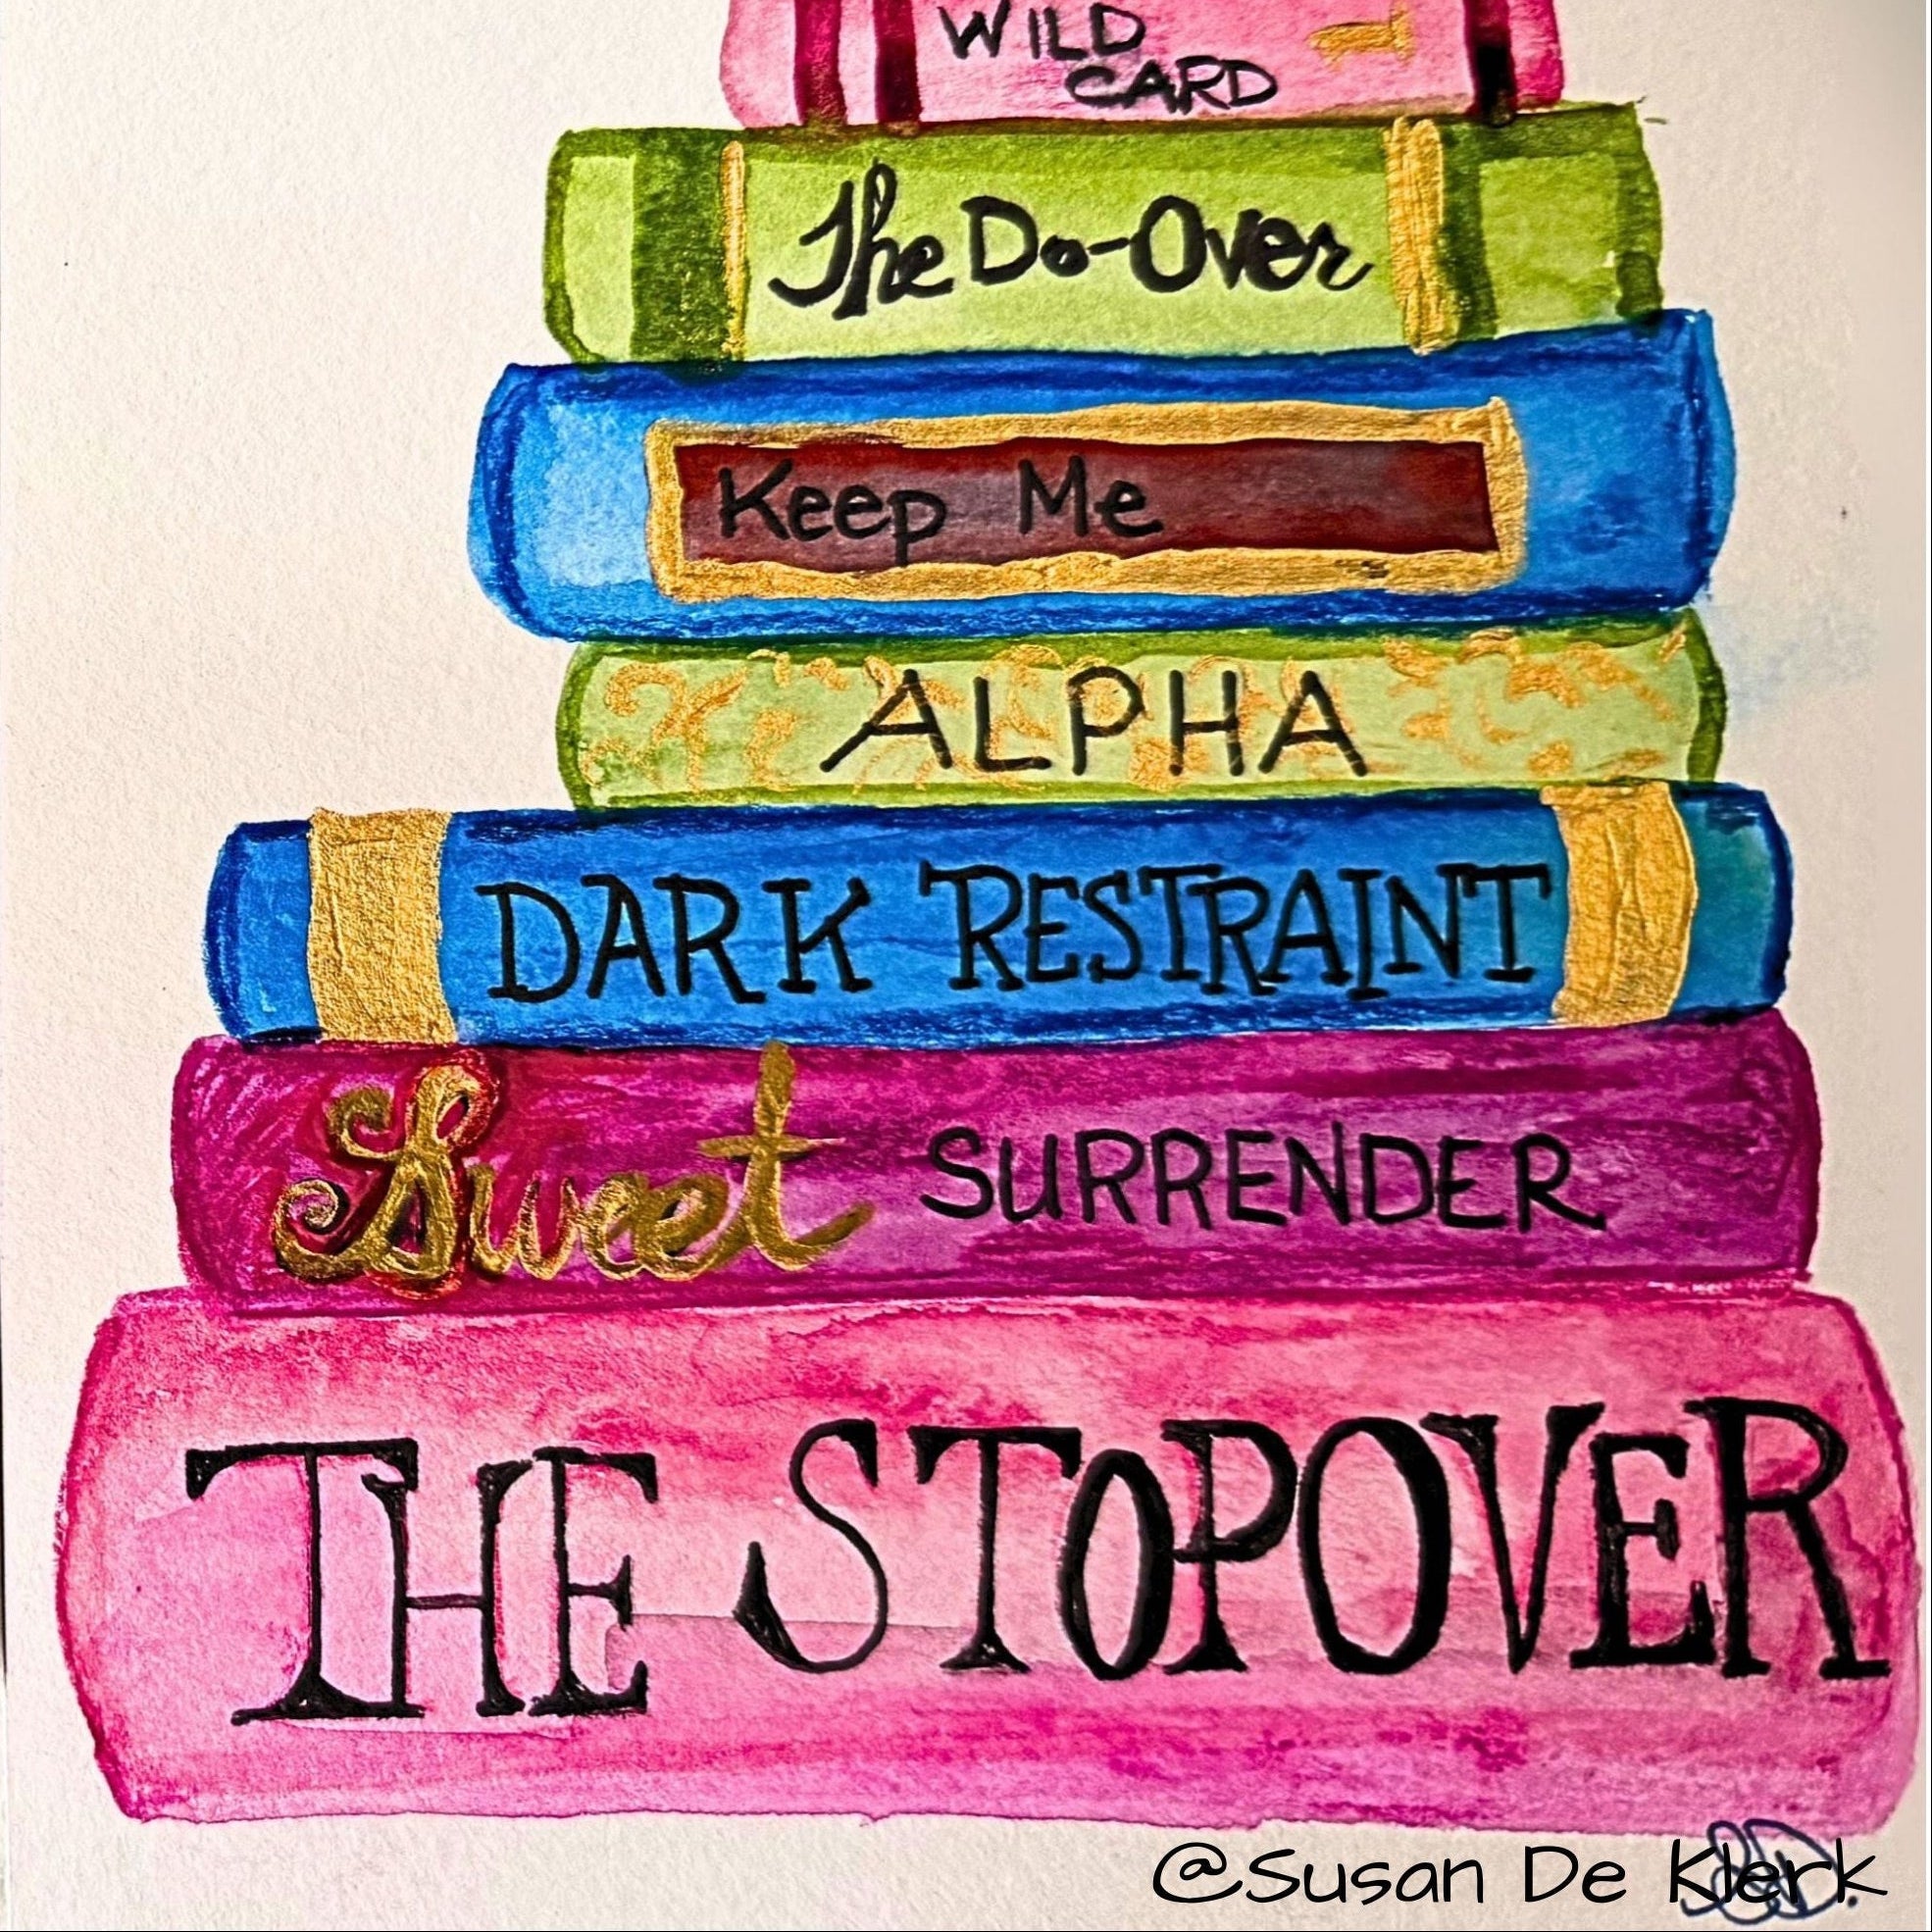 WILD
CARD
The Do-Over
Keep Me
ALPHA
DARK RESTRAINT
Sweet SURRENDER
THE STOPOVER
@Susan De Klerk